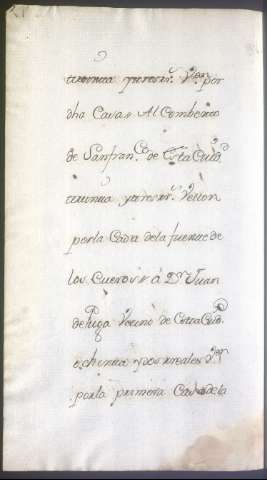 treinta y tres mrs. Von por
dha Casa = Al Combento
de Sanfranco. de Esta Ciud.
treinta y tres mrs. Vellon
por la Casa de la fuente de
los Cueros = á Dn. Juan
de Puga Vecino de Esta Ciud.
ochenta y dos reales Von
por la primera Casa de la